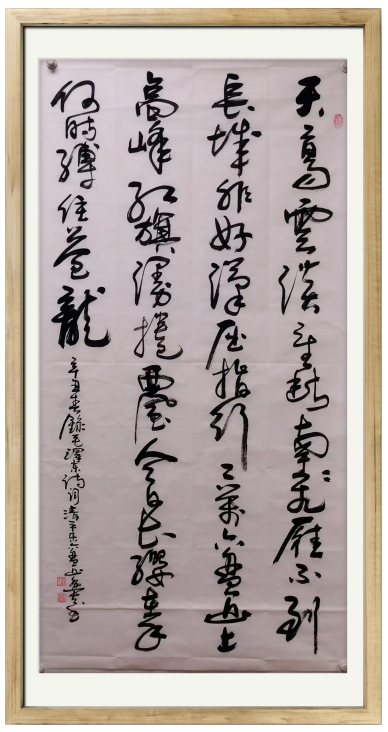 天高雲淡望斷南飛雁不到
長城非好漢屈指行二萬六盤山上
高峰紅旗漫捲西風今日長纓在手
何時縛住蒼龍
辛丑春錄毛澤東詩詞清平樂六盤山